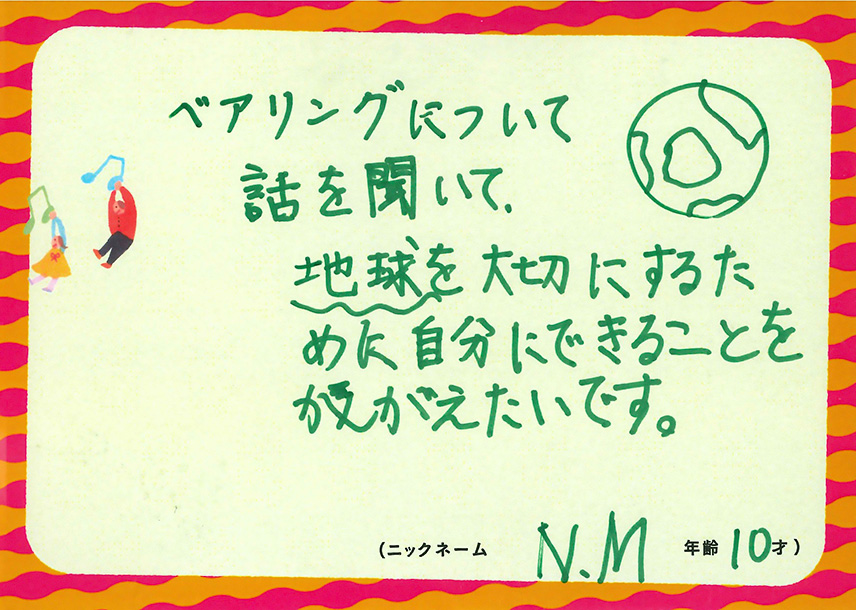 ベアリングについて
話を聞いて、
地球を大切にするた
めに自分にできることを
かんがえたいです。
(ニックネーム N.M 年齢 10才)